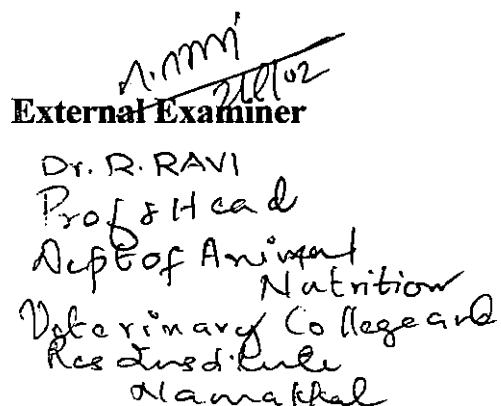 External Examiner
Dr. R. RAVI
Prof & Head
Dept of Animal
Nutrition
Veterinary College and
Res Institute
Namakkal